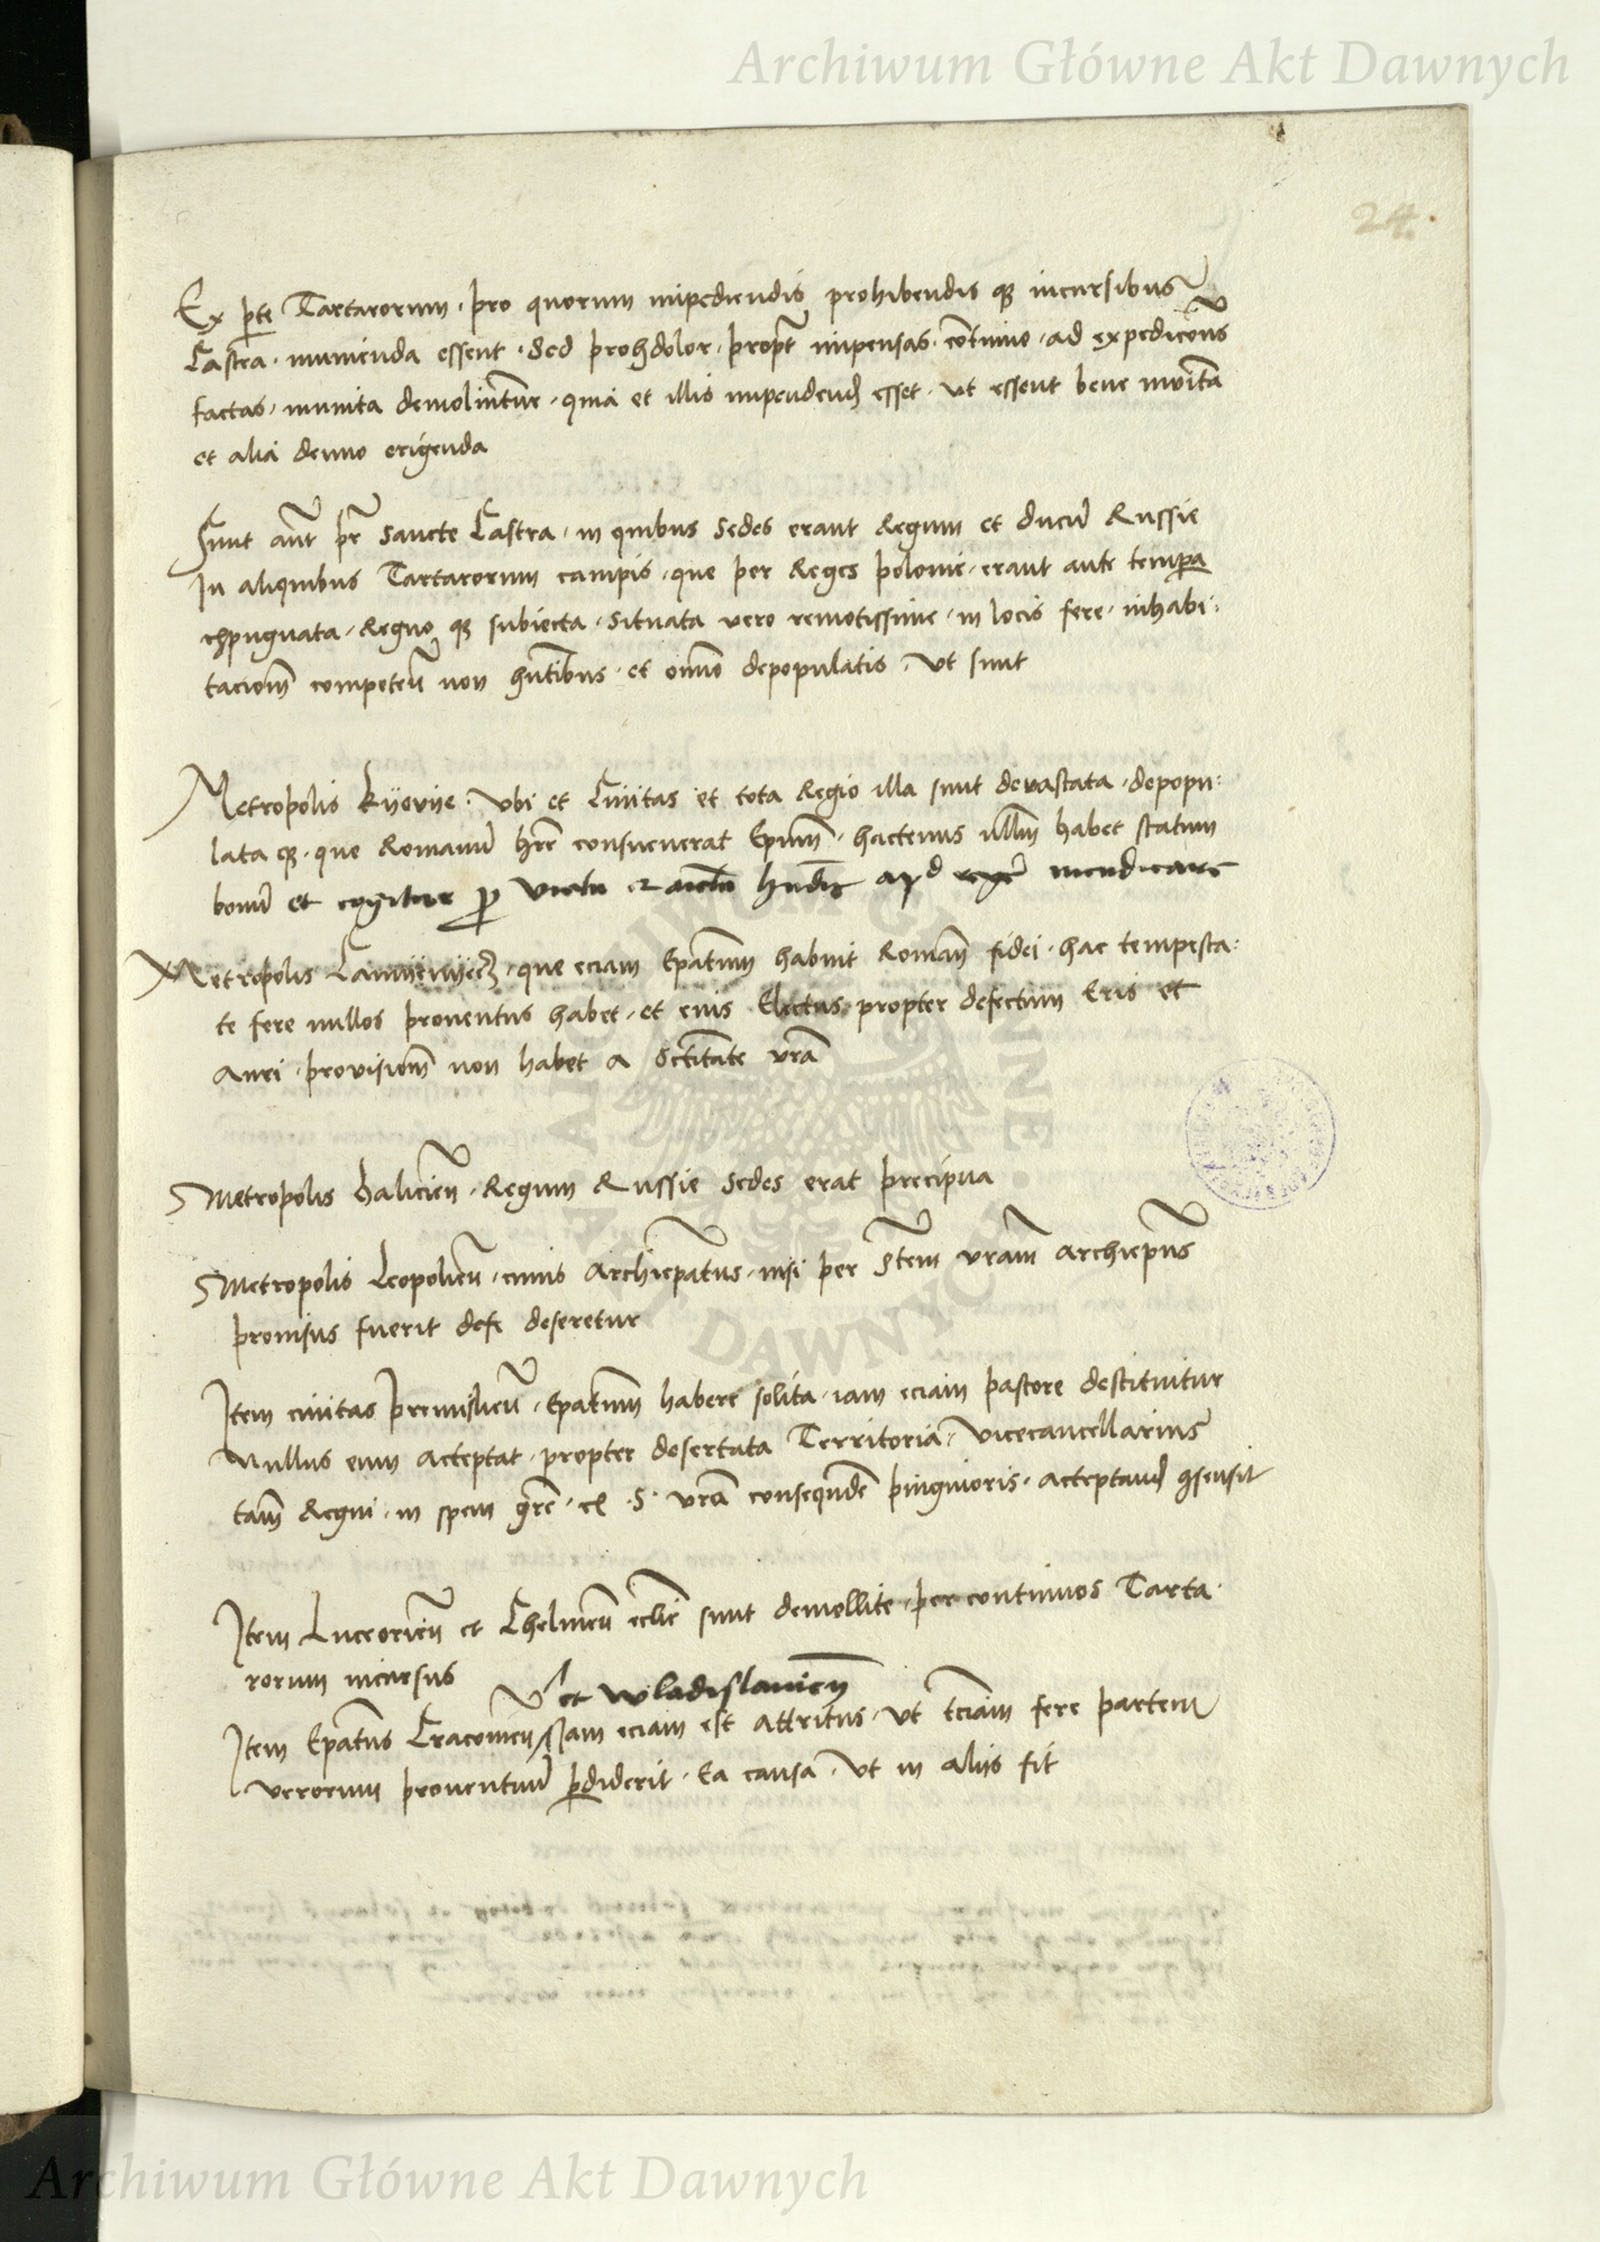 Archiwum Główne Akt Dawnych
24.
Ex pte Tartarorum · pro quorum impediendis prohibendis q3 incursibus
Castra · munienda essent · Sed prohdolor · propt impensas · continuo · ad expedicões
factas · munita demolintur · quia et illis impendend esset · Ut essent bene munita
et alia denuo erigenda
Sunt aut pr Sancte Castra · in quibus Sedes erant Regum et ducū Russie
In aliquibus Tartarorum campis · que per Reges polonie · erant ante tempora
expugnata · Regno q3 subiecta · Situata vero remotissime · in locis fere · inhabi:
tacionē competen non hntibus · et omnino depopulatis · Ut sunt
Metropolis kÿovÿe · Ubi et Civitas et tota Regio illa sunt devastata · depopu:
lata q3 · que Romanū hre consueverat Epum · hactenus ullm habet statum
bonū et cogitur p victu et amictu apd mendicare
Metropolis · que eciam Epatum habuit Roman fidei · hac tempesta:
te fere nullos proventus habet · et eius Electus propter defectum Eris et
Auri · provisionē non habet a Sctitate vra
Metropolis halicien · Regum Russie Sedes erat precipua
Metropolis Leopolien · cuius Archiepatus · nisi per Stem vram Archiepus
provisus fuerit defi deseretur
Item civitas premislien · Epatum habere solita · iam eciam pastore destituitur
Nullus eum acceptat · propter desertata Territoria · Vicecancellarius
tam Regni · in spem gre · S · vra consequnde pinguioris · acceptand gsensit
Item Luceorien et Chelmen eclie sunt demollite · per continuos Tarta·
rorum incursus
et Wladislavien
Item Epatus Cracovien iam eciam est attritus · Ut tciam fere partem
verorum proventuū pdiderit · Ea causa · Ut in aliis fit
Archiwum Główne Akt Dawnych